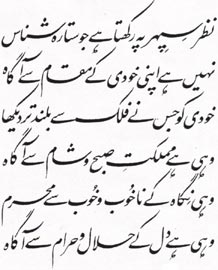 نظر سپہر پہ رکھتا ہے جو ستارہ شناس
نہیں ہے اپنی خودی کے مقام سے آگاہ
خودی کو جس نے فلک سے بلند تر دیکھا
وہی ہے مملکتِ صبح و شام سے آگاہ
وہی نگاہ کے ناخوب و خوب سے محرم
وہی ہے دل کے حلال و حرام سے آگاہ